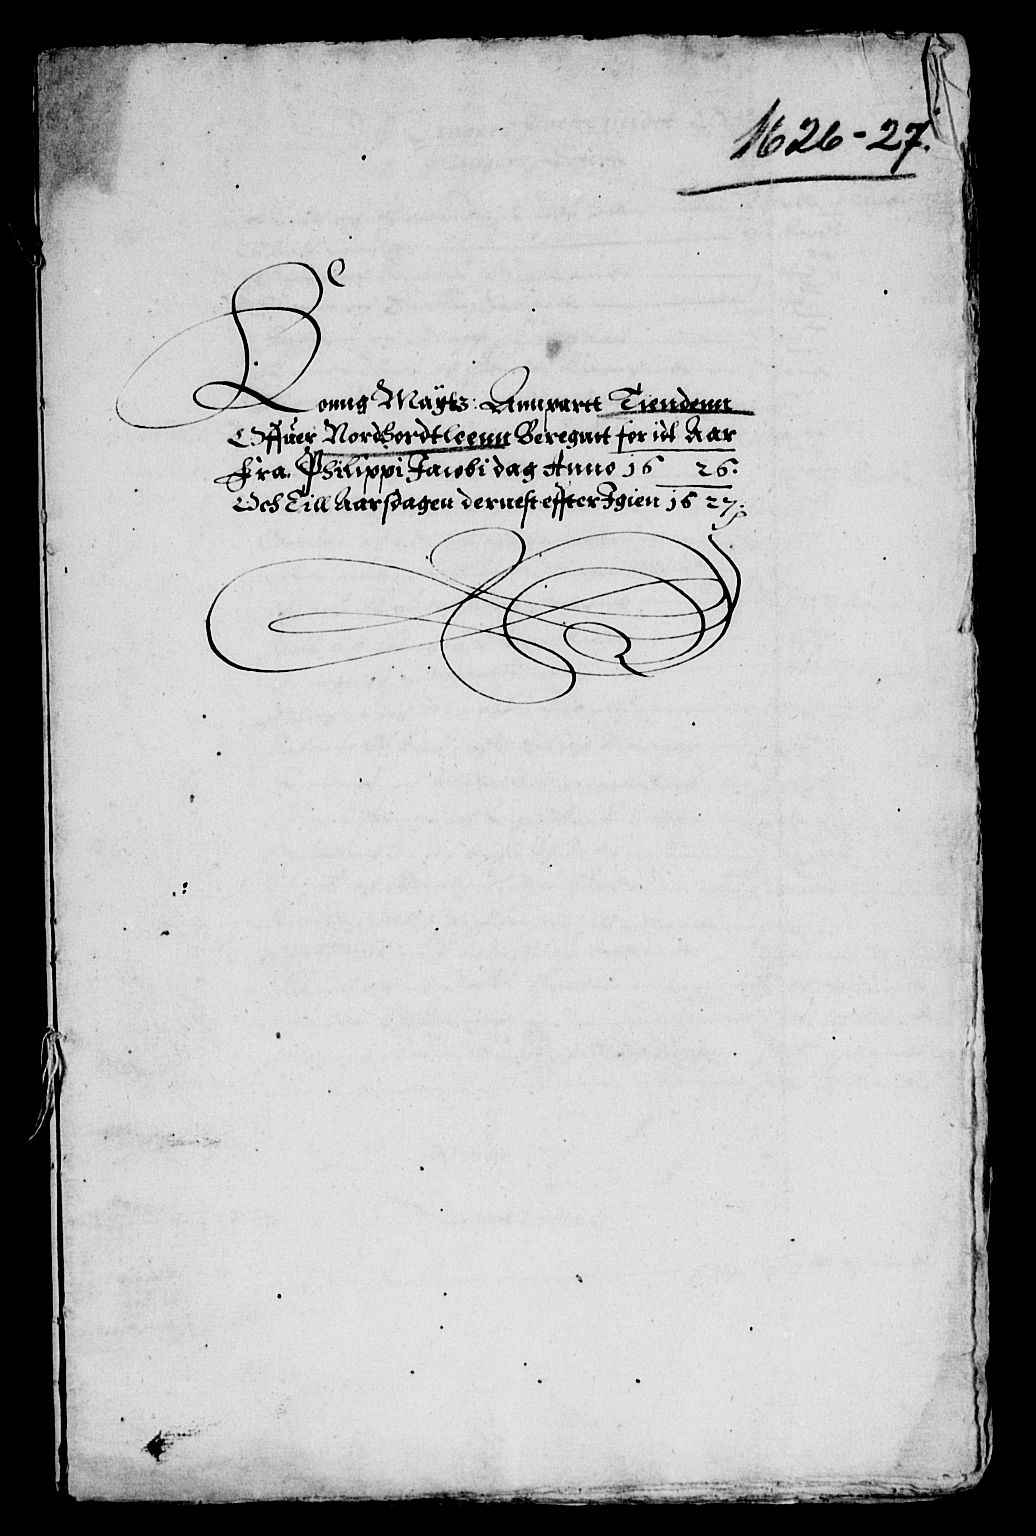 1626-27.
Konng Maÿtz: Annpartt Tiendenn
Offuer Nordfiordtleenn Beregnit for itt Aar
Fra. Philippi Jacobi dag Anno 16 26.
Och Till Aarsdagen dernest effter Igien 16 27.